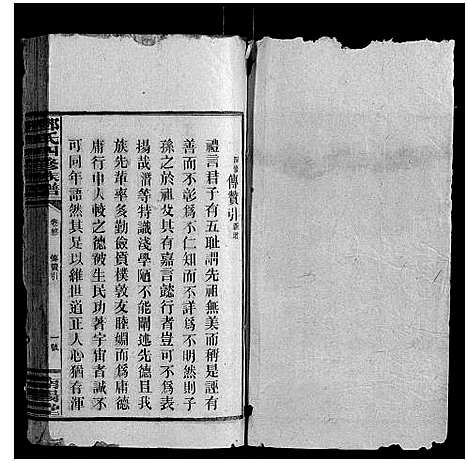 四修傳贊引
禮言君子有五耻謂先祖無美而稱是誣有
善而不彰為不仁知而不詳為不明然則子
孫之於祖攵具有嘉言懿行者豈可不為表
揚哉潛等特識淺學陋不能闡述先德且我
族先輩率多勤儉質樸敦友睦婣而為庸德
庸行中人較之德被生民功著宇宙者誠不
可同年語然其足以維世道正人心猶有渾
氏四修族譜
卷首
傳贊引
一號